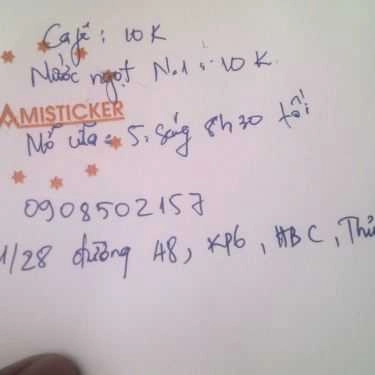 Cafê : 10K
Nước ngọt No.1 : 10K
AMISTICKER
Mở cửa : 5. sáng 8h30 tối
0908502157
1/28 đường 48, KP6, HBC, Thủ